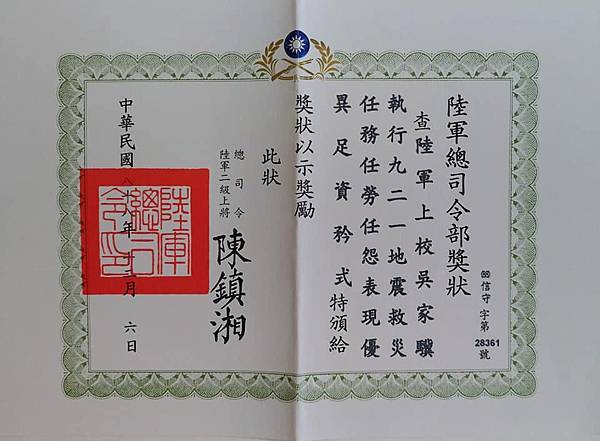 陸軍總司令部獎狀
(88)信守 字第
28361
號
查陸軍上校吳家驥
執行九二一地震救災
任務任勞任怨表現優
異足資矜式特頒給
獎狀以示獎勵
此狀
總司令
陸軍二級上將
陳鎮湘
陸軍總司令印
中華民國八八年十二月六日